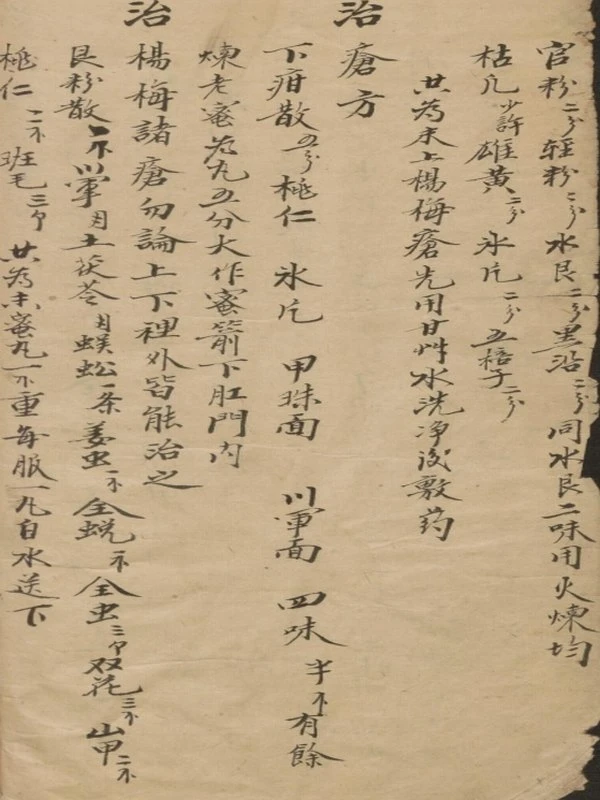 官粉二分 輕粉二分 水艮二分 黑沿二分 同水艮二味用火煉均
枯凡少許 雄黃二分 氷片二分 五棓子二分
共為末上楊梅瘡先用甘艸水洗净後敷药
治瘡方
下疳散五分 桃仁 氷片 甲珠面 川軍面 四味半不有餘
煉老蜜為丸五分大作蜜箭下肛門内
治楊梅諸瘡勿論上下裡外皆能治之
艮粉散 川軍 土茯苓 蜈蚣一条 姜虫 全蜕 全虫 双花三 山甲二
桃仁二 班毛三 共為末蜜丸一不重每服一丸白水送下